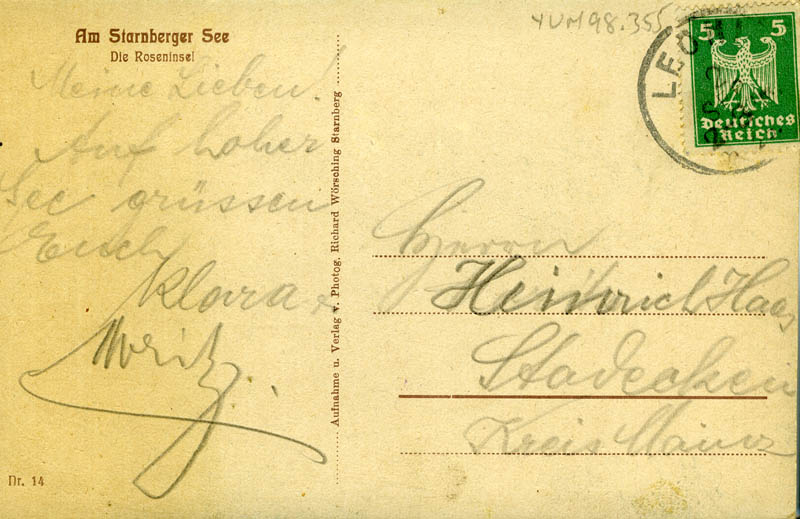 Am Starnberger See
Die Roseninsel
Meine Lieben!
Auf hoher
See grüssen
Euch
Klara
Moritz.
Nr. 14
Aufnahme u. Verlag v. Photog. Richard Wörsching Starnberg
YVM98.355
LEONI
5 5
Deutsches
Reich
Herrn
Heinrich Haas
Stadecken
Kreis Mainz